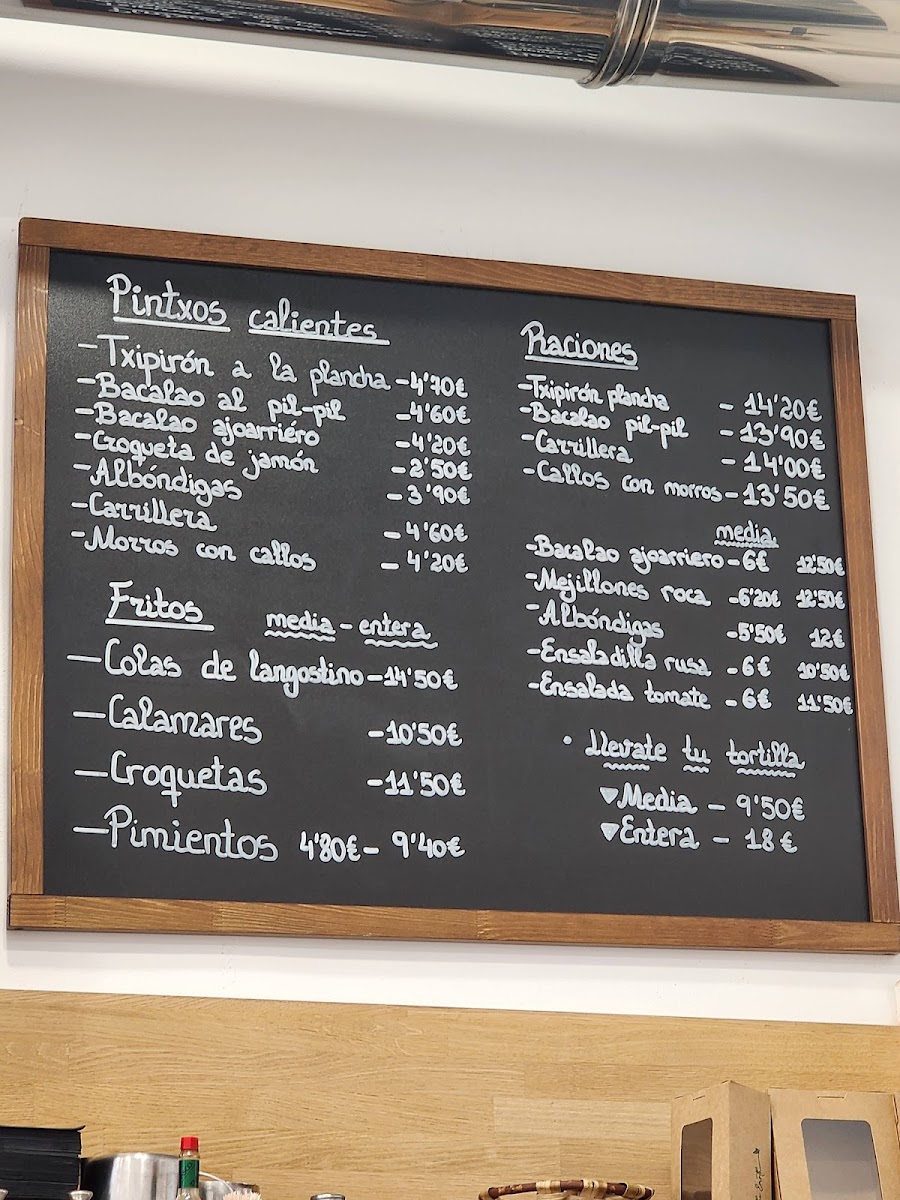 Pintxos calientes
-Txipirón a la plancha -4'70€
-Bacalao al pil-pil -4'60€
-Bacalao ajoarriéro -4'20€
-Croqueta de jamón -2'50€
-Albóndigas -3'90€
-Carrillera -4'60€
-Morros con callos -4'20€
Fritos media - entera
-Colas de langostino -14'50€
-Calamares -10'50€
-Croquetas -11'50€
-Pimientos 4'80€ - 9'40€
Raciones
-Txipirón plancha -14'20€
-Bacalao pil-pil -13'90€
-Carrillera -14'00€
-Callos con morros -13'50€
media
-Bacalao ajoarriero -6€ 12'50€
-Mejillones roca -6'20€ 12'50€
-Albóndigas -5'50€ 12€
-Ensaladilla rusa -6€ 10'50€
-Ensalada tomate -6€ 11'50€
· Llevate tu tortilla
▼Media - 9'50€
▼Entera - 18€